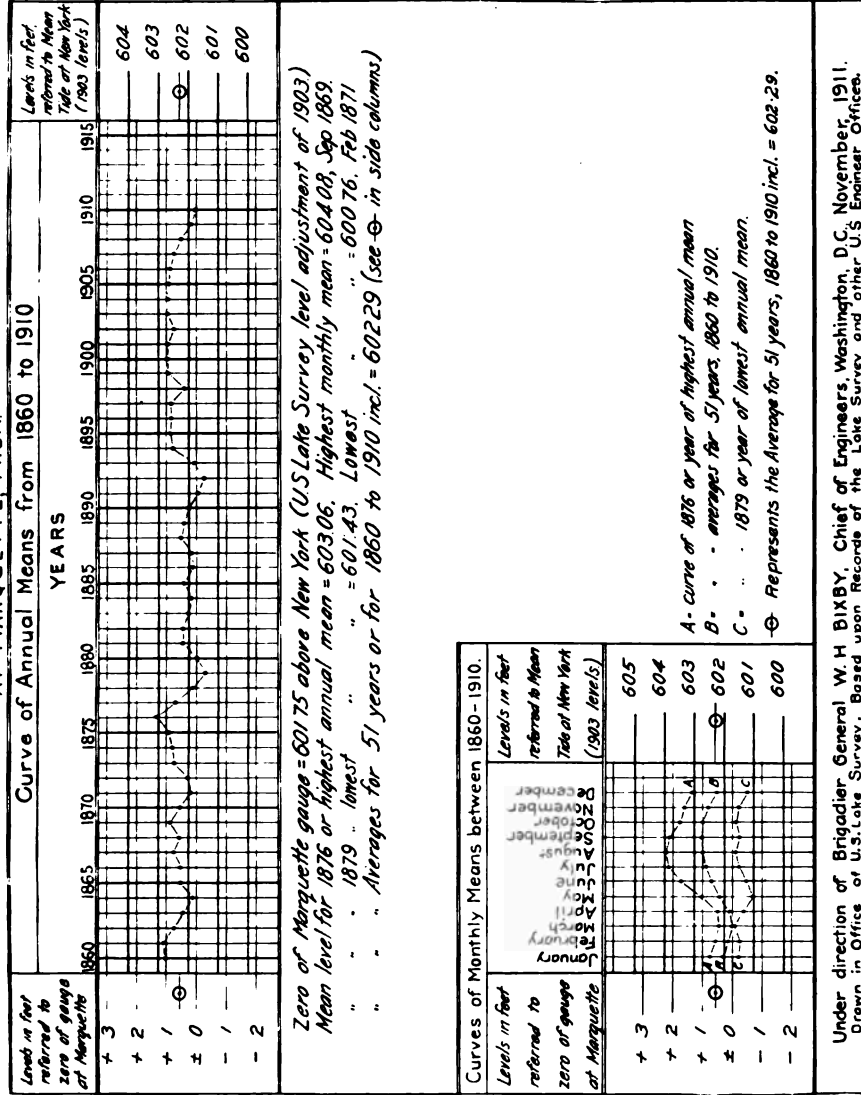 Curve of Annual Means from 1860 to 1910
Levels in feet
referred to
zero of gauge
at Marquette
YEARS
Levels in feet
referred to Mean
Tide at New York
(1903 levels)
1860 1865 1870 1875 1880 1885 1890 1895 1900 1905 1910 1915
+ 3
+ 2
+ 1
± 0
- 1
- 2
604
603
602
601
600
Zero of Marquette gauge = 601 75 above New York (US Lake Survey level adjustment of 1903)
Mean level for 1876 or highest annual mean = 603.06. Highest monthly mean = 604 08, Sep 1869.
" " " 1879 " lowest " " = 601.43. Lowest " " = 600 76. Feb 1871
" " " Averages for 51 years or for 1860 to 1910 incl. = 602 29 (see ⊖ in side columns)
Curves of Monthly Means between 1860-1910.
Levels in feet
referred to
zero of gauge
at Marquette
January
February
March
April
May
June
July
August
September
October
November
December
Levels in feet
referred to Mean
Tide at New York
(1903 levels)
+ 3
+ 2
+ 1
± 0
- 1
- 2
A
B
C
A
B
C
605
604
603
602
601
600
A - curve of 1876 or year of highest annual mean
B = " " averages for 51 years, 1860 to 1910.
C = " " 1879 or year of lowest annual mean.
⊖ Represents the Average for 51 years, 1860 to 1910 incl. = 602.29.
Under direction of Brigadier General W. H BIXBY, Chief of Engineers, Washington, D.C. November, 1911.
Drawn in Office of U.S. Lake Survey. Based upon Records of the Lake Survey and other U.S. Engineer Offices.